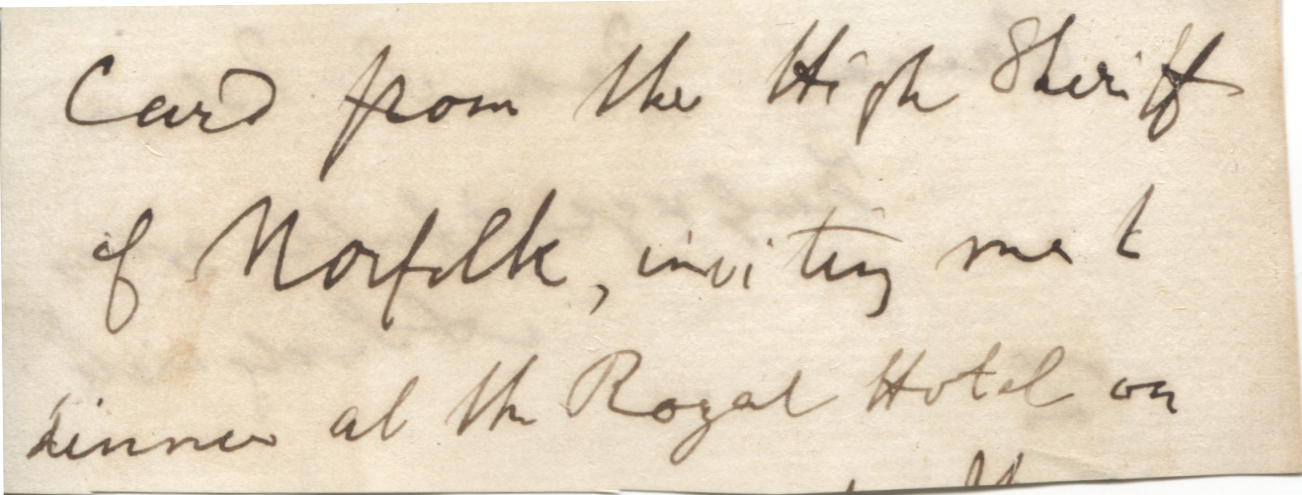 Card from the High Sheriff
of Norfolk, inviting me t
dinner at the Royal Hotel on